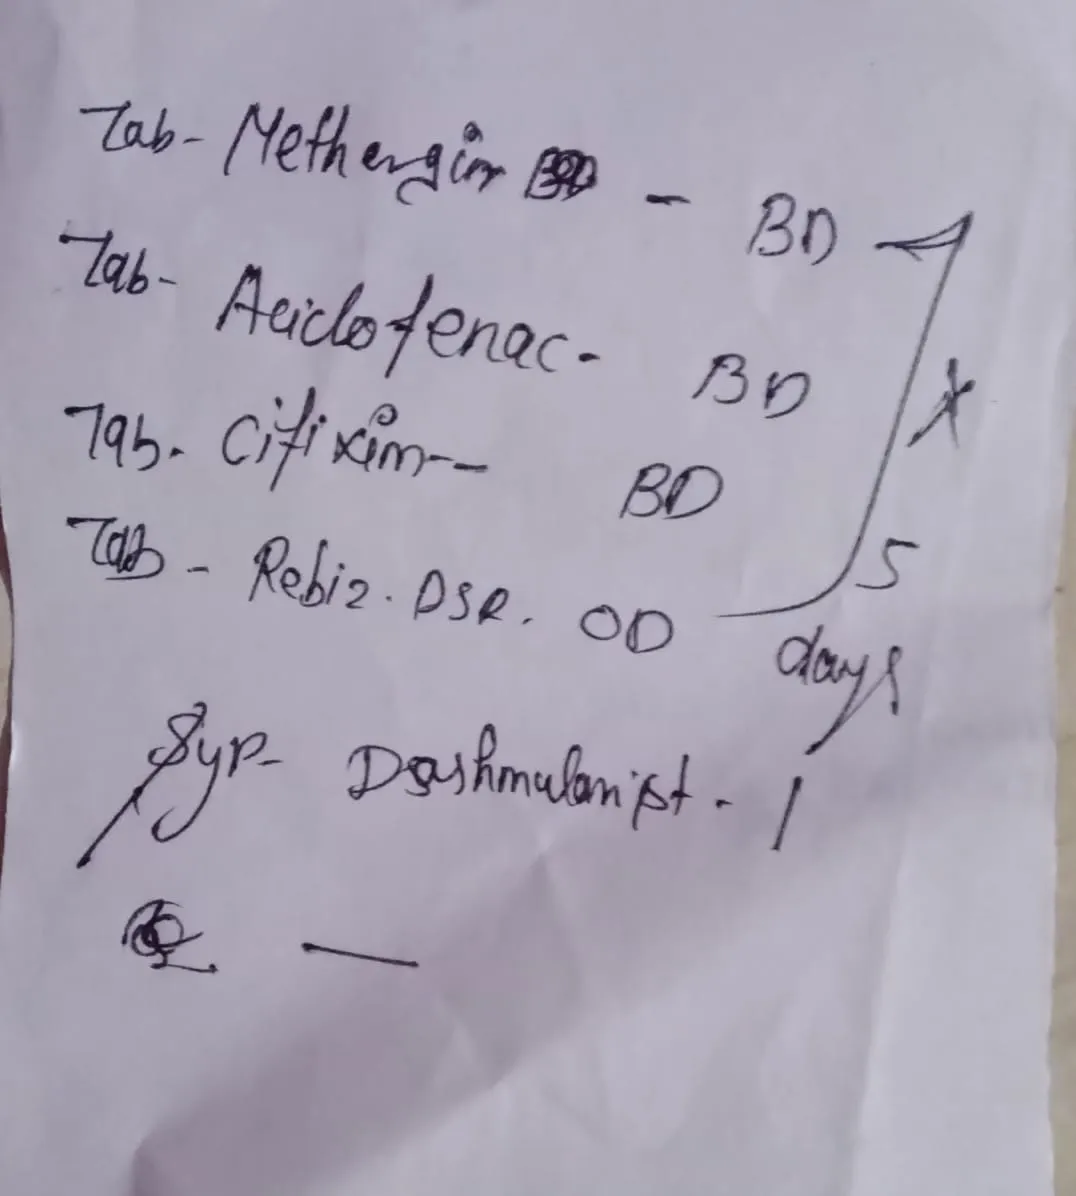 Tab- Methergin - BD
Tab- Aciclofenac - BD
Tab. Cifixim-- BD
Tab - Rebiz. DSR. OD
X 5 days
Syp- Dashmulanist - 1